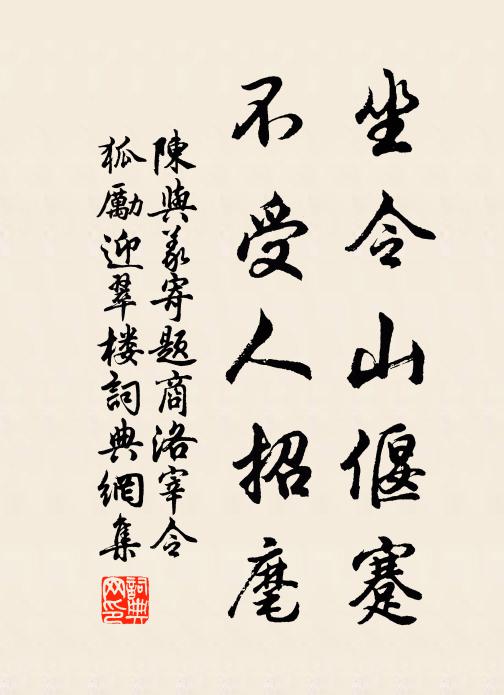 坐令山偃蹇
不受人招麾
陳與義寄題商洛宰令
狐勵迎翠楼詞典網集
詞典
网印